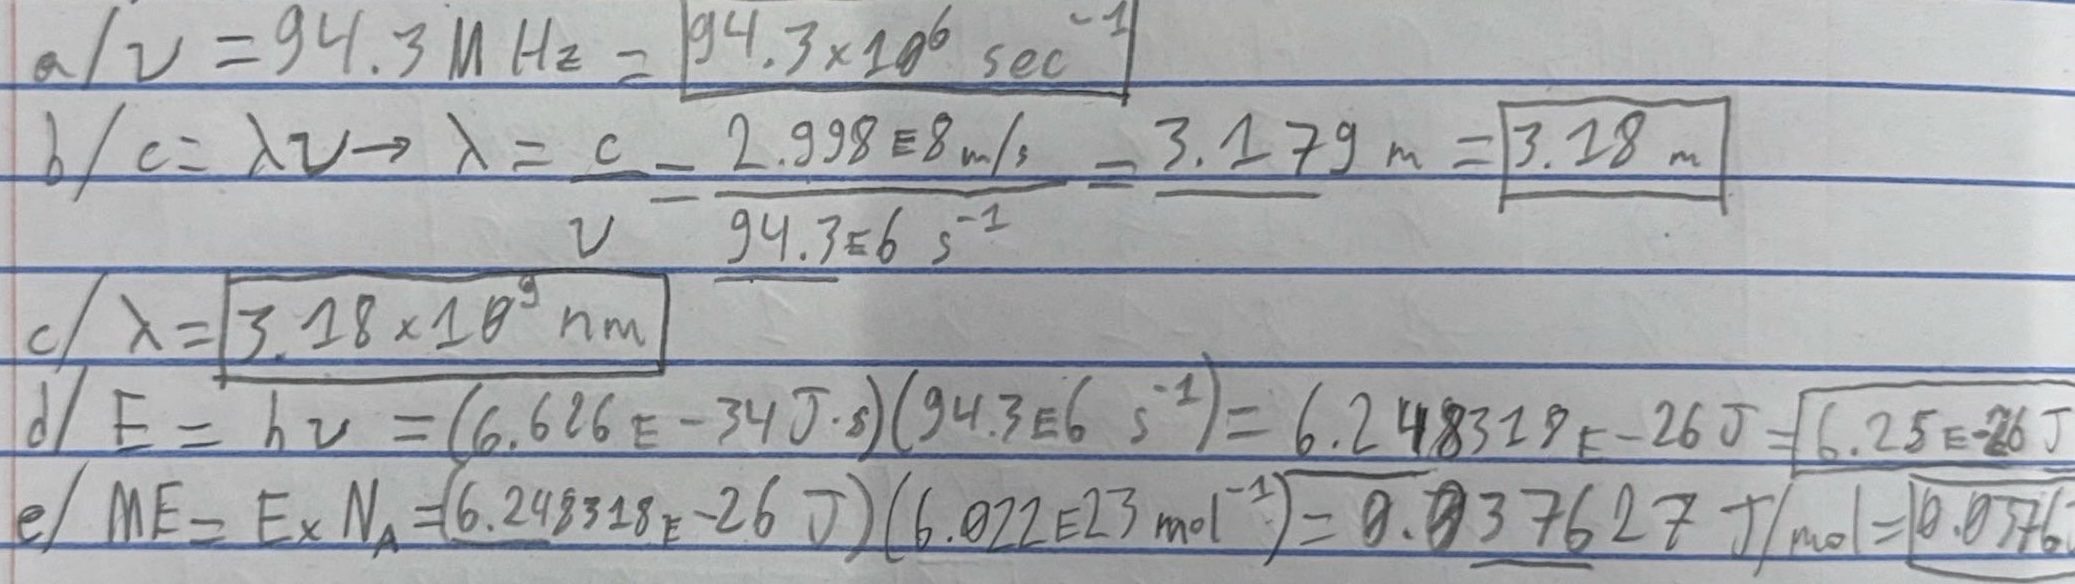 a/ ν = 94.3 M Hz = 94.3×10⁶ sec⁻¹
b/ c = λν → λ = c/ν = 2.998E8 m/s / 94.3E6 s⁻¹ = 3.179 m = 3.18 m
c/ λ = 3.18×10⁹ nm
d/ E = hν = (6.626E-34 J·s)(94.3E6 s⁻¹) = 6.248318E-26 J = 6.25E-26 J
e/ ME = E × N_A = (6.248318E-26 J)(6.022E23 mol⁻¹) = 0.037627 J/mol = 0.0376